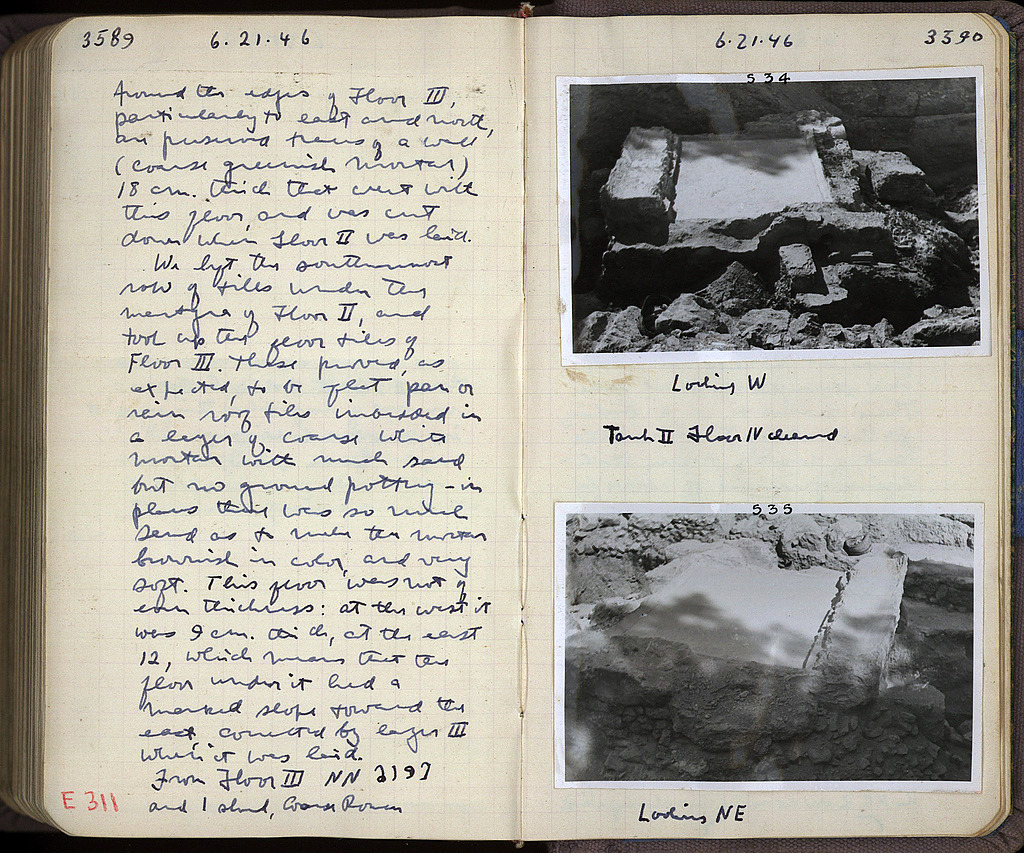 3589 6.21.46
Around the edges of Floor III,
particularly to east and north,
are preserved traces of a wall
(coarse greenish mortar)
18 cm. thick that went with
this floor, and was cut
down when Floor II was laid.
We left the southernmost
row of tiles under the
of Floor II, and
took up the floor tiles of
Floor III. These proved, as
expected, to be flat pan or
rain roof tiles imbedded in
a layer of coarse white
mortar with much sand
but no ground pottery – in
places there was so much
sand as to make the mortar
brownish in color, and very
soft. This floor was not of
even thickness: at the west it
was 9 cm. thick, at the east
12, which means that the
floor under it had a
marked slope toward the
east corrected by layer III
when it was laid.
From Floor III NN 2197
and 1 sherd, Coarse Roman
E 311
6.21.46 3590
534
Looking W
Tank II Floor IV cleaned
535
Looking NE